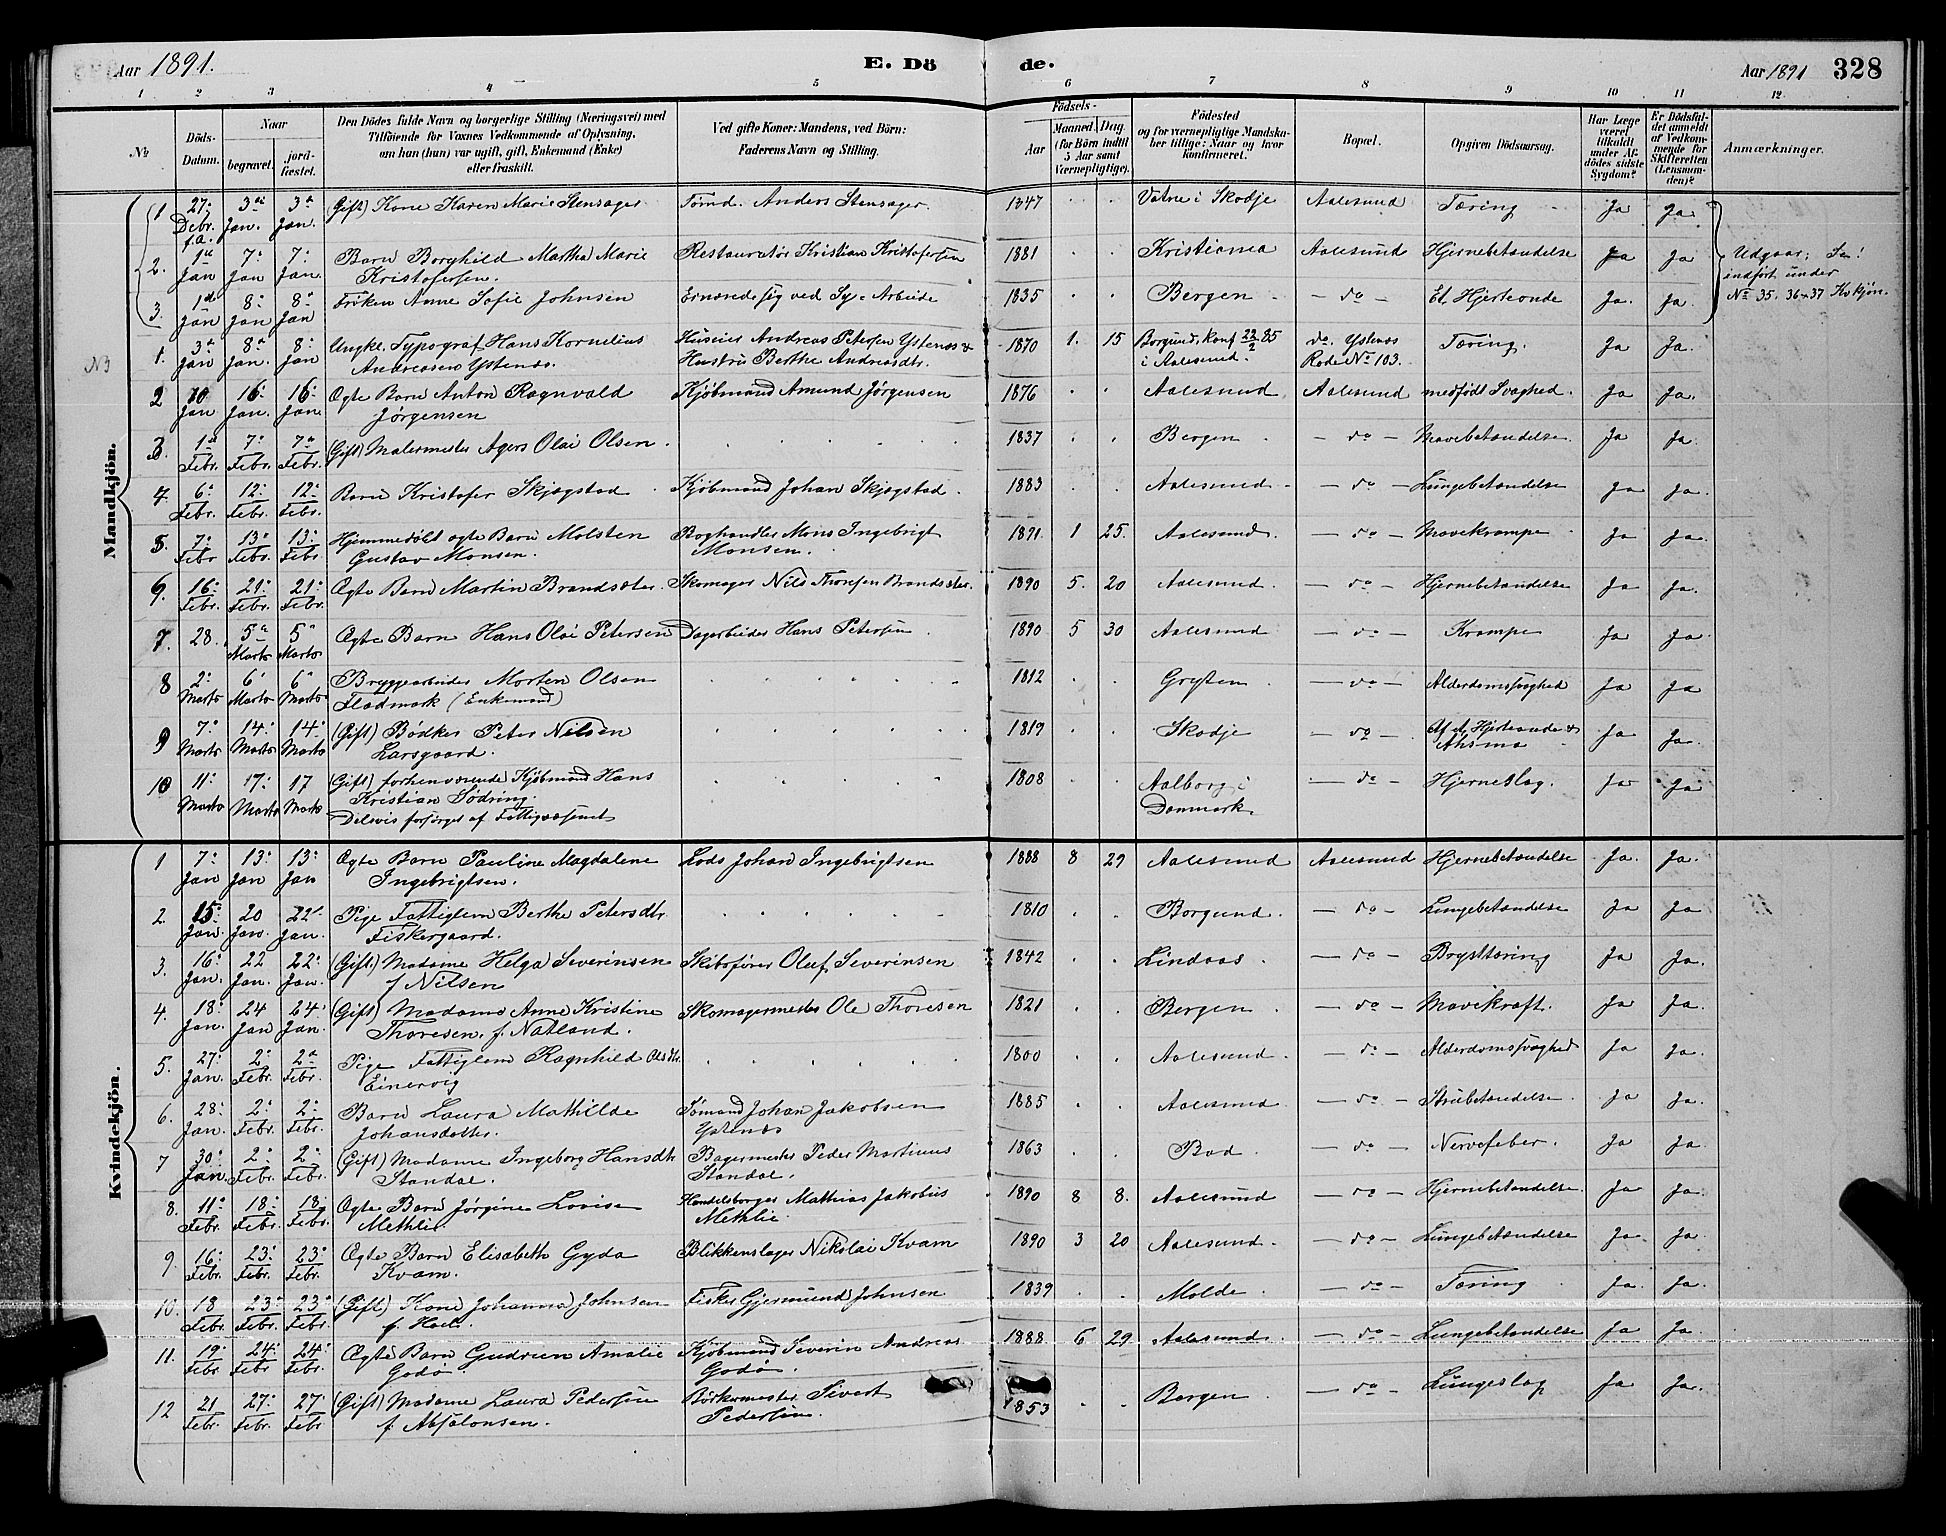 Aar 1891.
E. Dö
de.
Aar 1891
328
1 2 3 4 5 6 7 8 9 10 11 12
№
Döds-Datum.
Naar
begravet.
jord-fæstet.
Den Dödes fulde Navn og borgerlige Stilling (Næringsvei) med
Tilföiende for Voxnes Vedkommende af Oplysning,
om han (hun) var ugift, gift, Enkemand (Enke)
eller fraskilt.
Ved gifte Koner: Mandens, ved Börn:
Faderens Navn og Stilling.
Födsels-
Aar
Maaned. Dag.
(for Börn indtil
5 Aar samt
Værnepligtige).
Födested
og for værnepligtige Mandska-
ber tillige: Naar og hvor
konfirmeret.
Bopæl.
Opgiven Dödsaarsag.
Har Læge
været
tilkaldt
under Af-
dödes sidste
Sygdom?
Er Dödsfal-
det anmeldt
af Vedkom-
mende for
Skifteretten
(Lensman-
den)?
Anmærkninger.
Mandkjön.
1 27. Debr. f.a. 3die Jan. 3die Jan. (Gift) Kone Karen Marie Stensager Tømd. Anders Stensager. 1847 Vatne i Skodje Aalesund Tæring Ja Ja
2. 1ste Jan 7. Jan 7. Jan. Barn Borghild Martha Marie Restauratør Kristian Kristofersen 1881 Kristiania Aalesund Hjernebetændelse Ja Ja
Kristofersen.
3. 1ste Jan 8. Jan 8. Jan Frøken Anne Sofie Johnsen Ernærede sig ved Sy-Arbeide 1835 Bergen - do - Et Hjerteonde Ja. Ja.
Udgaar; Se!
indført under
No 35. 36 & 37 Kvkjøn.
NB
1. 3die Jan 8de Jan. 8. Jan Ungk. Typograf Hans Kornelius Huseier Andreas Petersen Ystenæs & 1870 1. 15 Borgund, Konf 22/2 85 do. Ystenæs Tæring. Ja Ja.
Andreasen Ystenæs. Hustru Berthe Andreasdtr. i Aalesund. Rode No 103.
2 10 Jan 16. Jan. 16. Jan. Ægte Barn Anton Ragnvald Kjøbmand Amund Jørgensen 1876 Aalesund Aalesund medfødt Svaghed. Ja Ja.
Jørgensen
3. 1ste Febr. 7. Febr. 7de Febr. (Gift) Malermester Agers Olai Olsen. 1837 Bergen - do - Mavebetændelse. Ja Ja.
4. 6. Febr. 12. Febr. 12. Febr. Barn Kristofer Skjøgstad Kjøbmand Johan Skjøgstad. 1883 Aalesund - do - Lungebetændelse Ja Ja.
5. 7. Febr 13. Febr. 13. Febr Hjemmedøbt ægte Barn Molsten Boghandler Mons Ingebrigt 1891 1 25. Aalesund. - do - Mavekrampe Ja Ja.
Gustav Monsen. Monsen.
6. 16. Febr. 21. Febr. 21. Febr. Ægte Barn Martin Brandsæter. Skomager Nils Thoresen Brandsæter. 1890 5. 20 Aalesund. - do - Hjernebetændelse Ja Ja.
7. 28. 5te Marts 5te Marts Ægte Barn Hans Olai Petersen Dagarbeider Hans Petersen. 1890 5 30 Aalesund - do - Krampe Ja Ja.
8 2. Marts 6 Marts 6. Marts Bryggearbeider Morten Olsen 1812 Gryten - do - Alderdomssvaghed Ja Ja
Fladmark (Enkemand)
9 7. Marts 14. Marts 14. Marts (Gift) Bødker Peter Nilsen 1819 Skodje - do - Af et Hjerteonde & Ja Ja.
Larsgaard. Ahsma
10 11. Marts 17. Marts 17 Marts (Gift) forhenværende Kjøbmand Hans 1808 Aalborg i - do - Hjerneslag. Ja Ja
Kristian Sødring. Danmark
Delevis forsørget af Fattigvæsenet
Kvindekjön.
1 7. Jan 13. Jan 13. Jan Ægte Barn Pauline Magdalene Lods Johan Ingebrigtsen 1888 8 29 Aalesund Aalesund Hjernebetændelse Ja. Ja.
Ingebrigtsen.
2. 15. Jan. 20 Jan. 22. Jan. Pige Fattiglem Berthe Petersdtr. 1810 Borgund. - do - Lungebetændelse Ja Ja
Fiskergaard.
3. 16. Jan. 22 Jan. 22. Jan. (Gift.) Madame Helga Severinsen Skibsfører Oluf Severinsen 1842 Lindaas. - do - Brysttæring Ja Ja.
f Nilsen
4. 18. Jan. 24 Jan 24. Jan. (Gift) Madame Anne Kristine Skomagermester Ole Thoresen 1821 Bergen. - do - Mavekræft. Ja Ja.
Thoresen, f. Natland.
5. 27. Jan. 2. Febr. 2. Febr. Pige Fattiglem Ragnhild Olsdtr. 1800 Aalesund. - do - Alderdomssvaghed Ja Ja.
Einervig
6. 28. Jan. 2. Febr. 2. Febr. Barn Laura Mathilde Sømand Johan Jakobsen 1885 Aalesund - do - Strubetændelse. Ja Ja.
Johansdotter. Ystenæs
7 30. Jan. 2. Febr. 2. Febr. (Gift) Madame Ingeborg Hansdtr Bagermester Peder Martinus 1863 Bod. - do - Nervefeber. Ja Ja.
Standal. Standal.
8. 11. Febr. 18. Febr. 18. Febr. Ægte Barn Jørgine Lovise Handelsborger Mathias Jakobus 1890 8 8. Aalesund - do - Hjernebetændelse. Ja Ja.
Methlie. Methlie.
9. 16. Febr. 23. Febr. 23. Febr. Ægte Barn Elisabeth Gyda Blikkenslager Nikolai Kvam 1890 3 20 Aalesund. - do - Lungebetændelse Ja. Ja.
Kvam.
10. 18 Febr. 23. Febr. 23. Febr. (Gift) Kone Johanna Johnsen Fisker Gjermund Johnsen 1839 Molde. - do - Tæring Ja. Ja.
f.
11. 19. Febr 24. Febr. 24. Febr. Ægte Barn Gudrun Amalie Kjøbmand Severin Andreas 1888 6 29 Aalesund. - do - Lungebetændelse Ja Ja.
Godø. Godø.
12 21 Febr. 27. Febr. 27 Febr (Gift) Madame Laura Pedersen Bødkermester Sivert 1853 Bergen - do - Lungeslag Ja Ja.
f. Absalonsen. Pedersen.